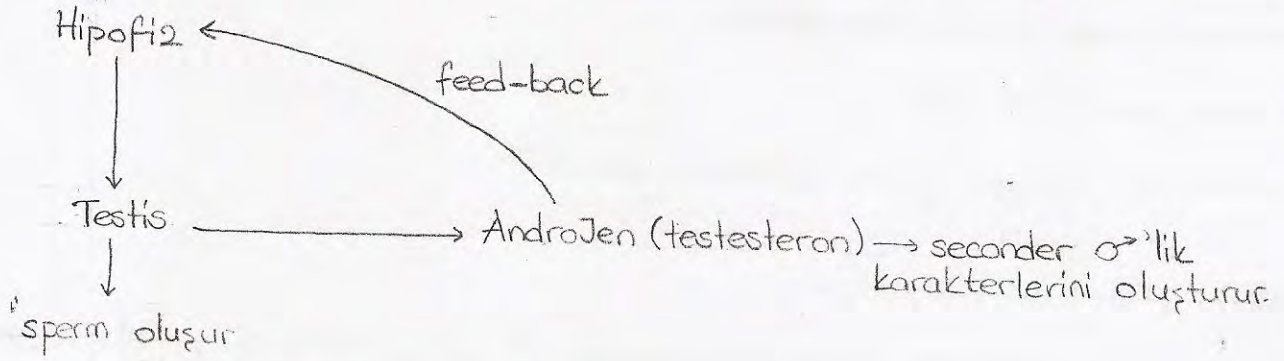 Hipofiz
feed-back
Testis
AndroJen (testesteron) → seconder ♂'lik
karakterlerini oluşturur.
sperm oluşur